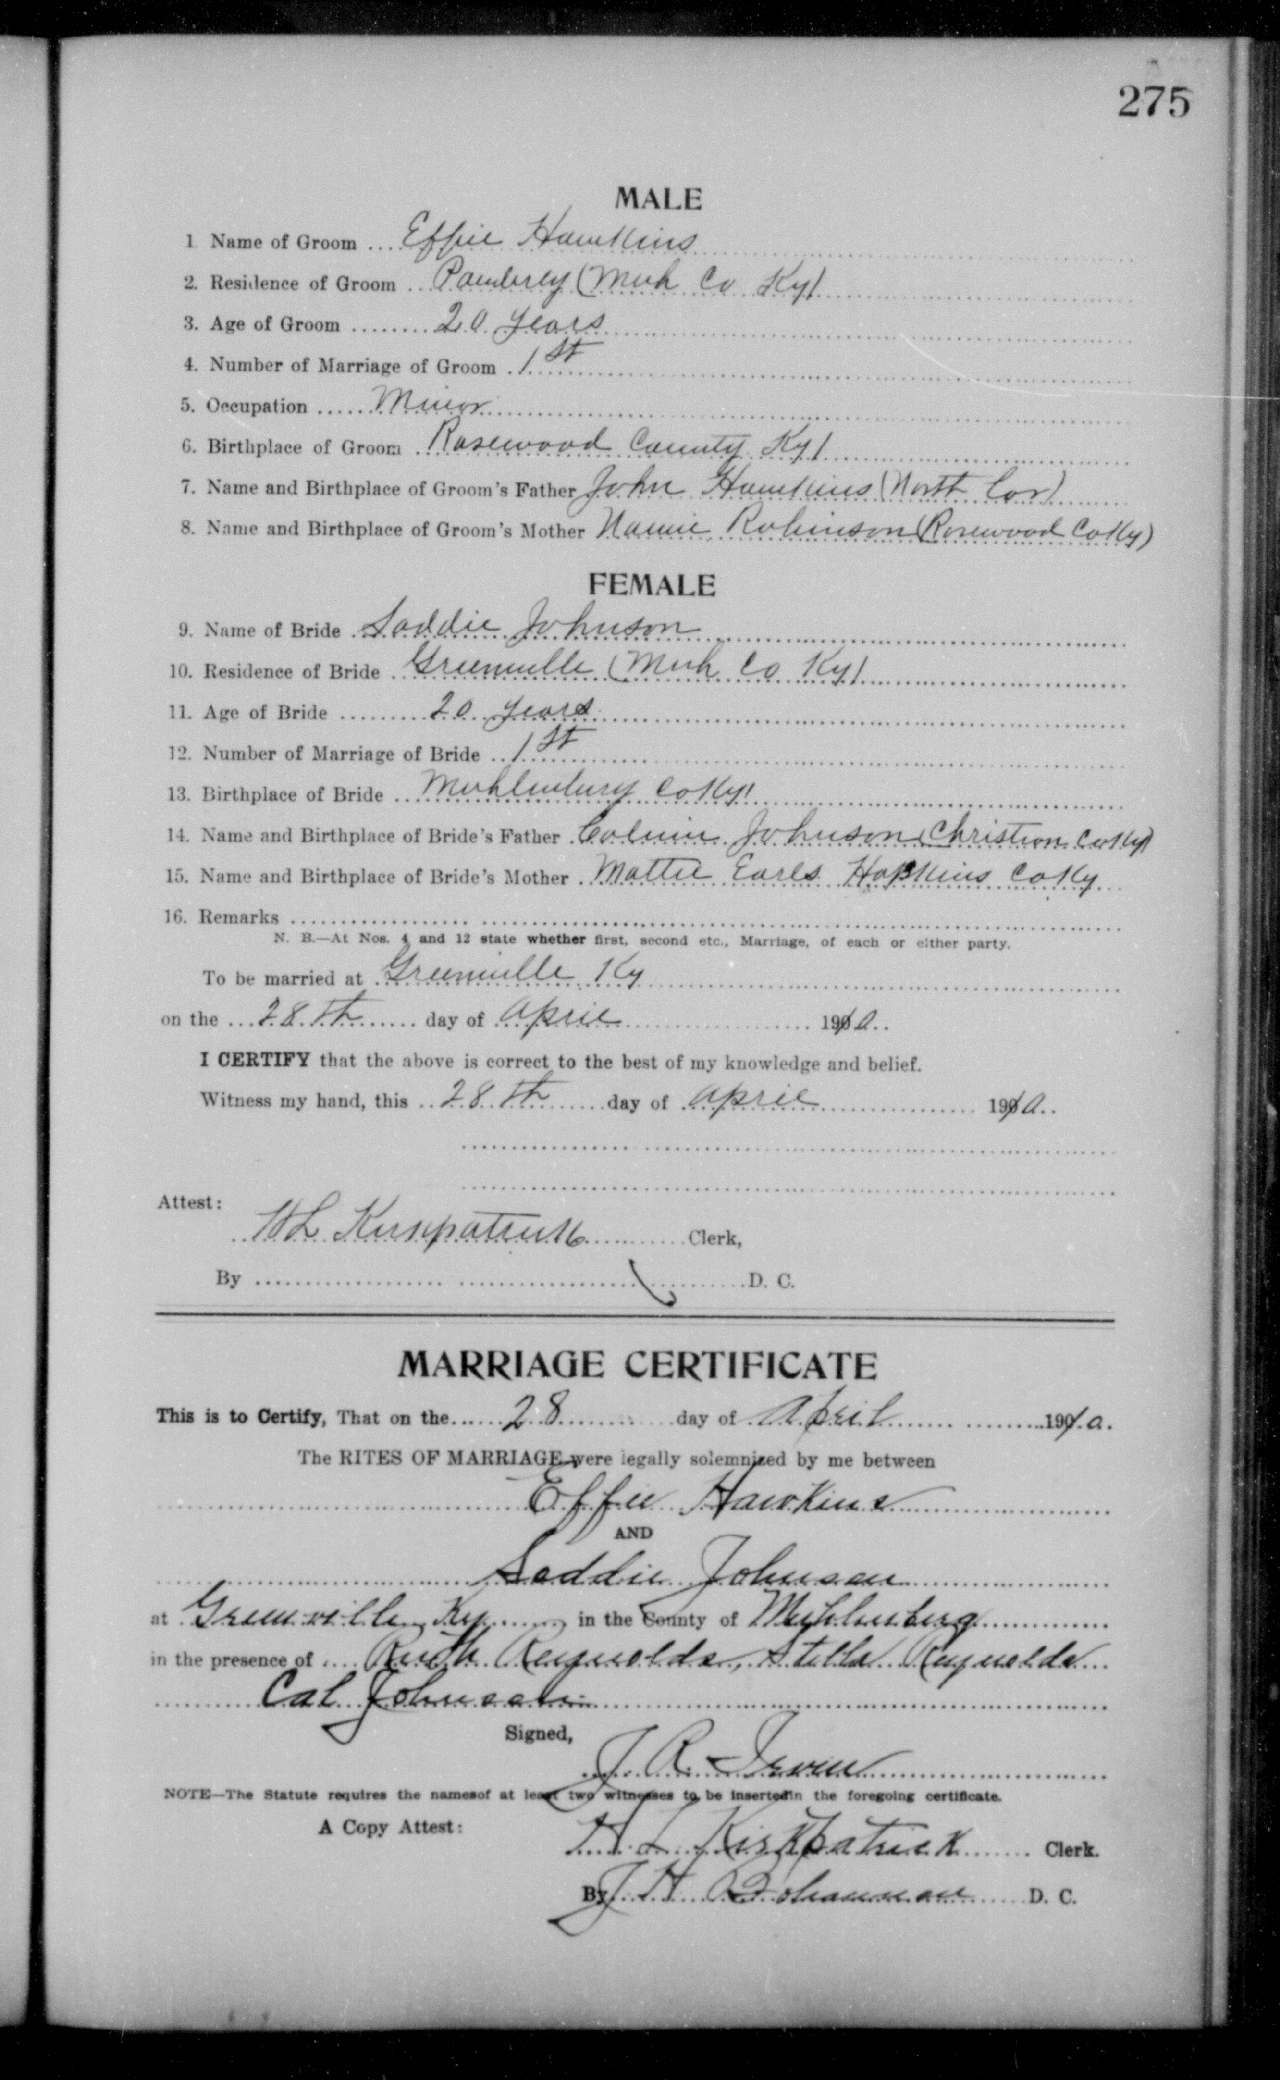 275
MALE
1 Name of Groom ... Effie Hawkins
2. Residence of Groom .. (Muh Co Ky)
3. Age of Groom ........ 20 years
4. Number of Marriage of Groom . 1st
5. Occupation ..... Minor
6. Birthplace of Groom .. Rosewood County Ky)
7. Name and Birthplace of Groom's Father John Hawkins (North Car)
8. Name and Birthplace of Groom's Mother Nannie Robinson (Rosewood Co Ky)
FEMALE
9. Name of Bride . Saddie Johnson
10. Residence of Bride .. Greenville (Muh Co Ky)
11. Age of Bride ......... 20 years
12. Number of Marriage of Bride .. 1st
13. Birthplace of Bride ... Muhlenburg Co Ky
14. Name and Birthplace of Bride's Father . Johnson (Christian Co Ky)
15. Name and Birthplace of Bride's Mother . Mattie Earls Hopkins Co Ky
16. Remarks
N. B.—At Nos. 4 and 12 state whether first, second etc., Marriage, of each or either party.
To be married at Greenville Ky
on the ... 28th ...... day of April 1910..
I CERTIFY that the above is correct to the best of my knowledge and belief.
Witness my hand, this .. 28th ...... day of April 1910..
Attest:
H L Kirkpatrick Clerk,
By D. C.
MARRIAGE CERTIFICATE
This is to Certify, That on the ..... 28 day of April 1910.
The RITES OF MARRIAGE were legally solemnized by me between
Effie Hawkins
AND
Saddie Johnson
at Greenville Ky in the County of Muhlenberg
in the presence of .... Ruth Reynolds, Stella Reynolds
Cal Johnson
Signed,
J. R. Irvin
NOTE—The Statute requires the namesof at least two witnesses to be insertedin the foregoing certificate.
A Copy Attest:
H L Kirkpatrick Clerk.
By J H Bohannan D. C.